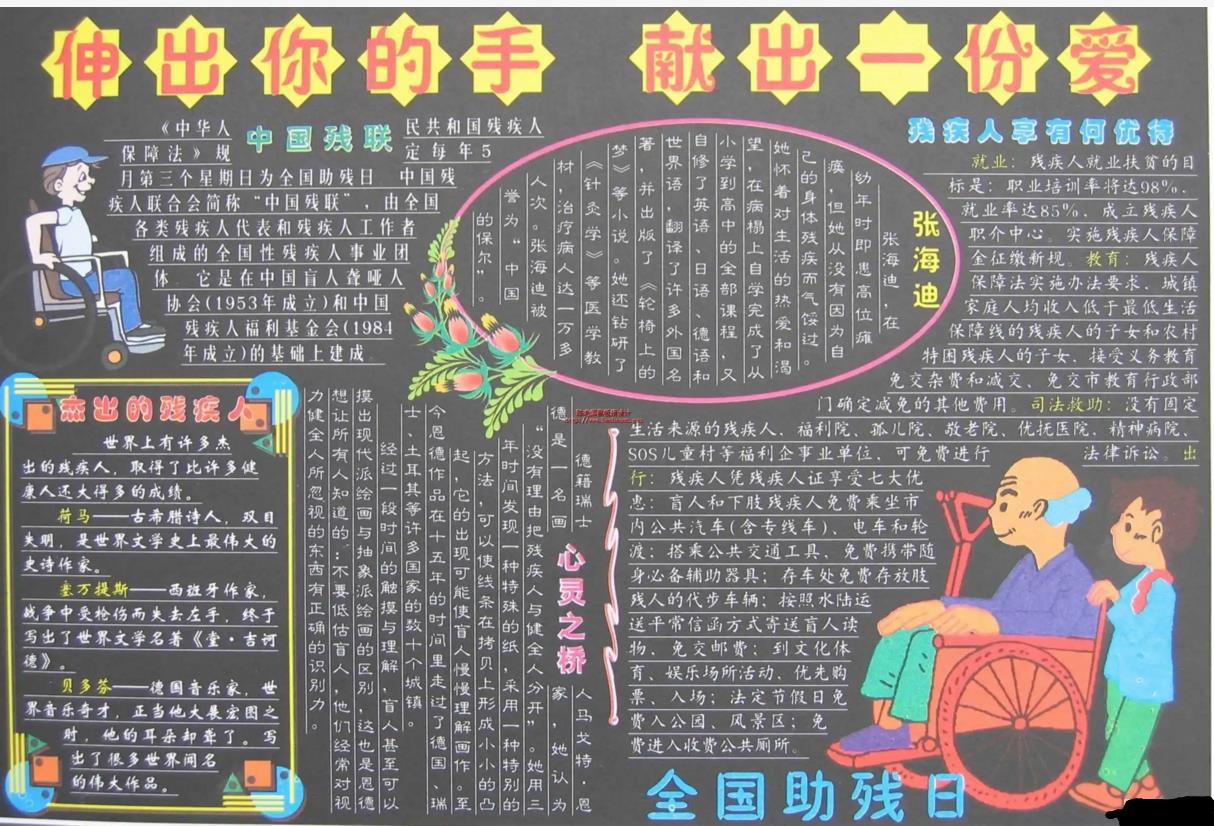 伸出你的手 献出一份爱
中国残联
《中华人民共和国残疾人
保障法》规定每年5
月第三个星期日为全国助残日 中国残
疾人联合会简称“中国残联”，由全国
各类残疾人代表和残疾人工作者
组成的全国性残疾人事业团
体 它是在中国盲人聋哑人
协会(1953年成立)和中国
残疾人福利基金会(1984
年成立)的基础上建成
张海迪
张海迪，在
幼年时即患高位瘫
痪，但她从没有因为自
己的身体残疾而气馁过。
她怀着对生活的热爱和渴
望，在病榻上自学完成了从
小学到高中的全部课程，又
自修了英语、日语、德语和
世界语，翻译了许多外国名
著，并出版了《轮椅上的
梦》等小说。她还钻研了
《针灸学》等医学教
材，治疗病人达一万多
人次。张海迪被
誉为“中国
的保尔”。
残疾人享有何优待
就业：残疾人就业扶贫的目
标是：职业培训率将达98%、
就业率达85%、成立残疾人
职介中心。实施残疾人保障
金征缴新规。教育：残疾人
保障法实施办法要求，城镇
家庭人均收入低于最低生活
保障线的残疾人的子女和农村
特困残疾人的子女，接受义务教育
免交杂费和减交、免交市教育行政部
门确定减免的其他费用。司法救助：没有固定
生活来源的残疾人、福利院、孤儿院、敬老院、优抚医院、精神病院、
SOS儿童村等福利企事业单位、可免费进行 法律诉讼。出
行：残疾人凭残疾人证享受七大优
惠：盲人和下肢残疾人免费乘坐市
内公共汽车(含专线车)、电车和轮
渡；搭乘公共交通工具，免费携带随
身必备辅助器具；存车处免费存放肢
残人的代步车辆；按照水陆运
送平常信函方式寄送盲人读
物，免交邮费；到文化体
育、娱乐场所活动，优先购
票、入场；法定节假日免
费入公园、风景区；免
费进入收费公共厕所。
杰出的残疾人
世界上有许多杰
出的残疾人，取得了比许多健
康人还大得多的成绩。
荷马——古希腊诗人，双目
失明，是世界文学史上最伟大的
史诗作家。
塞万提斯——西班牙作家，
战争中受枪伤而失去左手，终于
写出了世界文学名著《堂·吉诃
德》。
贝多芬——德国音乐家，世
界音乐奇才，正当他大展宏图之
时，他的耳朵却聋了。写
出了很多世界闻名
的伟大作品。
心灵之桥
德籍瑞士人马戈特，恩
德是一名画家，她认为
“没有理由把残疾人与健全人分开”。她用三
年时间发现一种特殊的纸，采用一种特别的
方法，可以使线条在拷贝上形成小小的凸
起，它的出现可能使盲人慢慢理解画作。至
今恩德作品在十五年的时间里走过了德国、瑞
士、土耳其等许多国家的数十个城镇。
经过一段时间的触摸与理解，盲人甚至可以
摸出现代派绘画与抽象派绘画的区别，这也是恩德
想让所有人知道的：不要低估盲人，他们经常对视
力健全人所忽视的东西有正确的识别力。
全国助残日